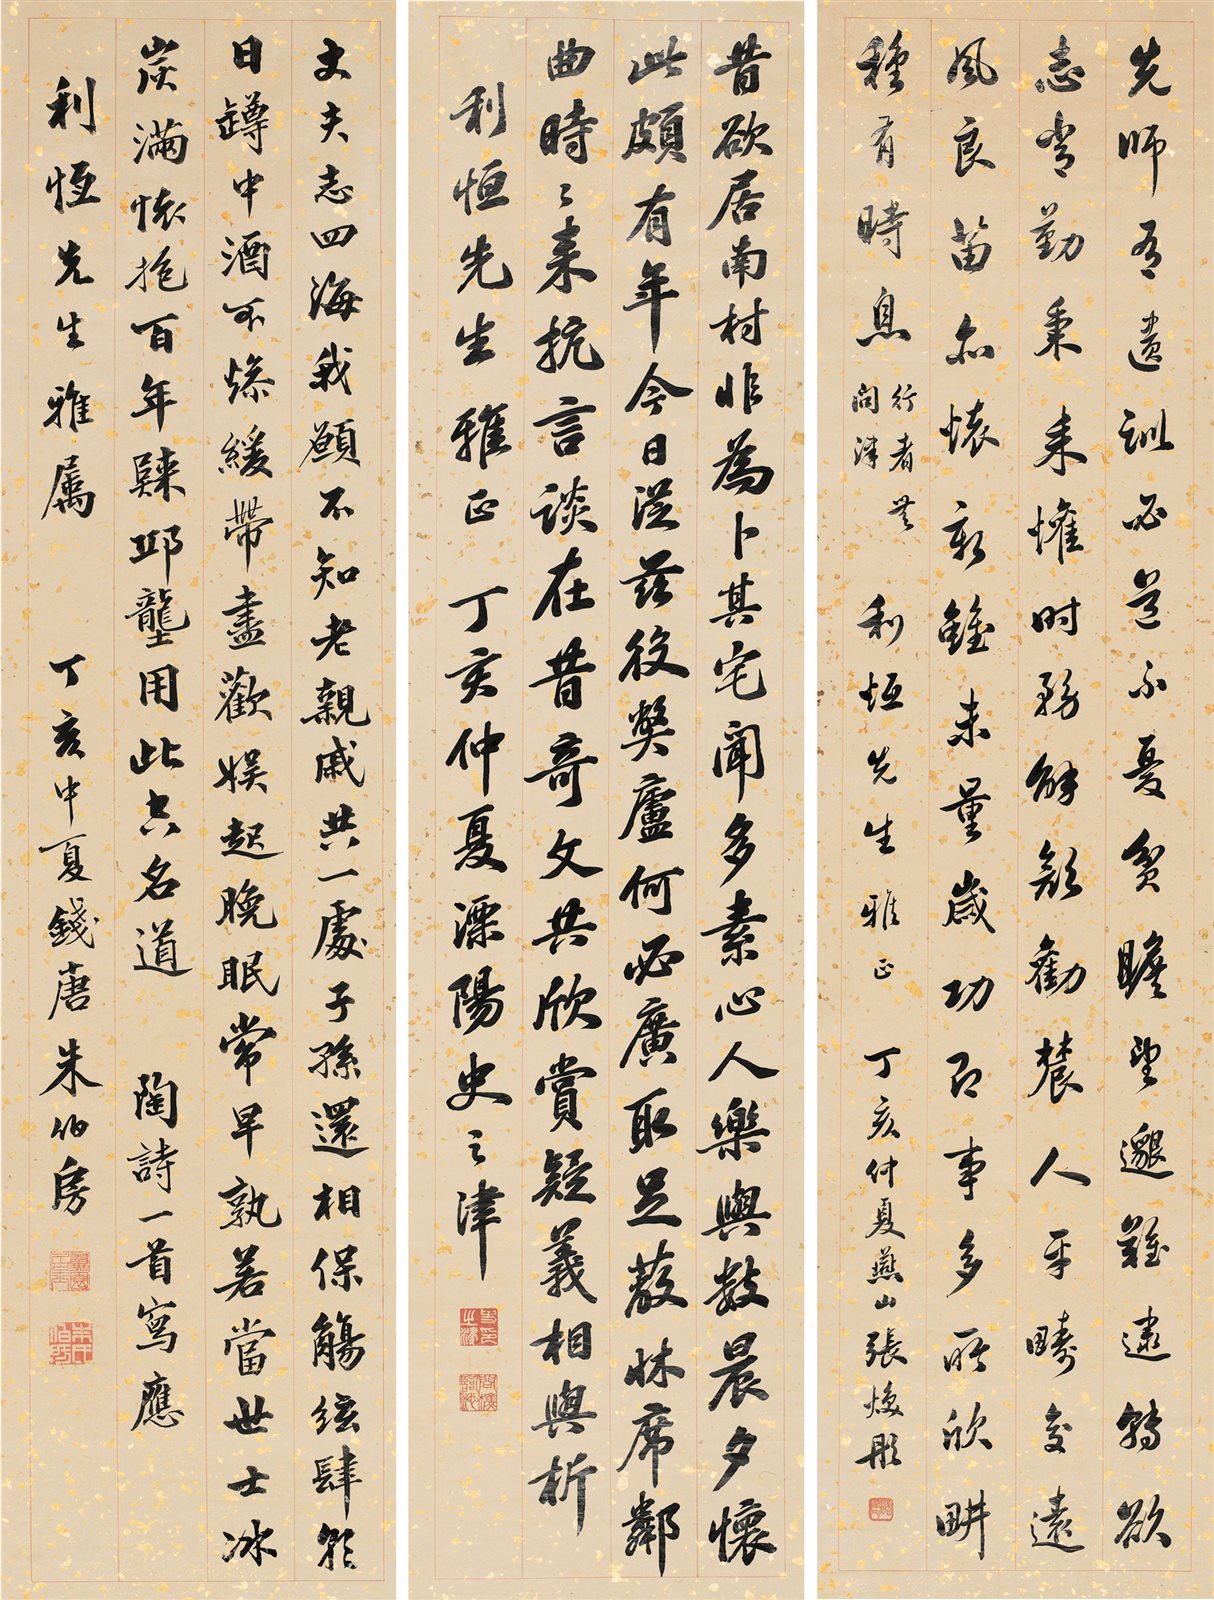 先師有遺訓必道不憂貧瞻望邈難逮轉欲
志常勤秉耒懽時務解顏勸農人平疇交遠
風良苗亦懷新雖未量歲功即事多所欣畊
種有時息行者無問津 利恒先生雅正 丁亥仲夏燕山張煥彤
昔欲居南村非為卜其宅聞多素心人樂與數晨夕懷
此頗有年今日從茲役獘廬何必廣取足蔽牀席鄰
曲時〻来抗言談在昔奇文共欣賞疑義相與析
利恒先生雅正 丁亥仲夏溧陽史之津
丈夫志四海我願不知老親戚共一處子孫還相保觴絃肆朝
日罇中酒不燥緩帶盡歡娱起晚眠常早孰若當世士冰
炭滿懷抱百年歸邱壟用此空名道 陶詩一首寫應
利恆先生雅屬 丁亥中夏錢唐朱伯房